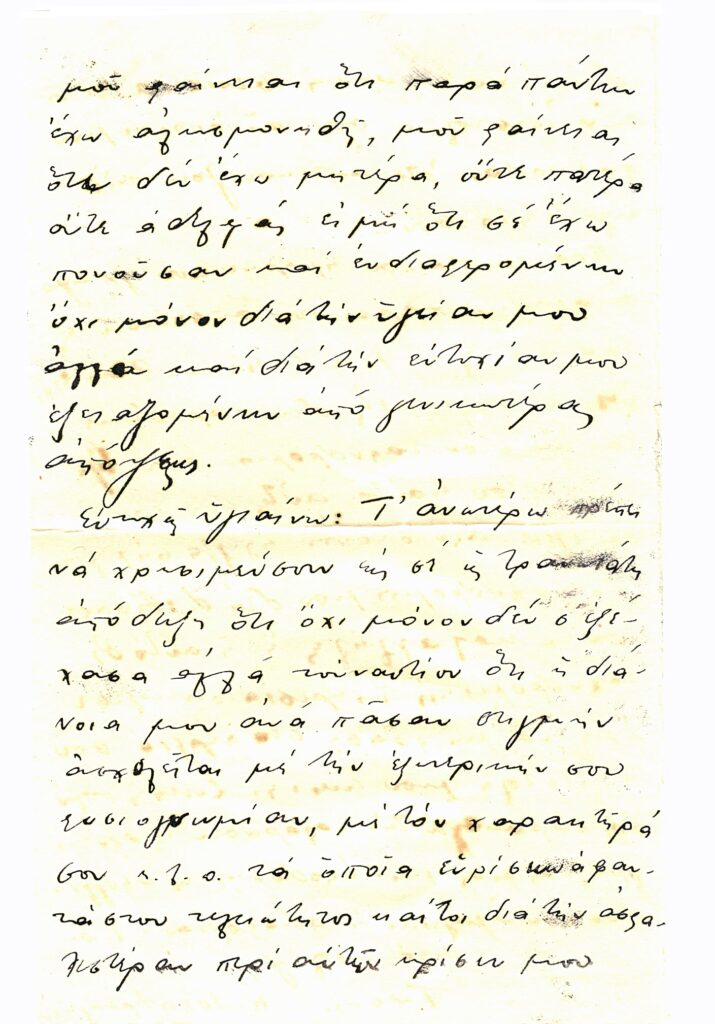 μοῦ φαίνεται ὅτι παρά πάντων
ἔχω λησμονηθῆ, μοῦ φαίνεται
ὅτι δέν ἔχω μητέρα, οὔτε πατέρα
οὔτε ἀδελφάς εἰμή ὅτι σέ ἔχω
πονοῦσαν καί ἐνδιαφερομένην
ὄχι μόνον διά τήν ὑγείαν μου
ἀλλά καί διά τήν εὐτυχίαν μου
ἐξεταζομένην ἀπό γενικωτέρας
ἀπόψεως.
Εὐτυχῶς ὑγιαίνω: Τ' ἀνωτέρω πρέπει
νά χρησιμεύσουν εἰς σέ ὡς τρανωτάτη
ἀπόδειξη ὅτι ὄχι μόνον δέν σ' ἐξέ-
χασα ἀλλά τοὐναντίον ὅτι ἡ διά-
νοια μου ἀνά πᾶσαν στιγμήν
ἀσχολεῖται μέ τήν ἐξωτερικήν σου
φυσιογνωμίαν, μέ τόν χαρακτῆρά
σου κ.λ.π. τά ὁποῖα εὑρίσκω ἀφαν-
τάστου τελειότητος καίτοι διά τήν ἀσφα-
λεστέραν περί αὐτῶν κρίσιν μου